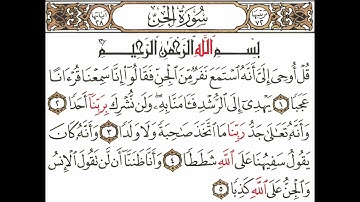 سُورَةُ الجِنِّ
بِسْمِ اللَّهِ الرَّحْمَٰنِ الرَّحِيمِ
قُلْ أُوحِىَ إِلَىَّ أَنَّهُ ٱسْتَمَعَ نَفَرٌ مِّنَ ٱلْجِنِّ فَقَالُوٓا۟ إِنَّا سَمِعْنَا قُرْءَانًا
عَجَبًا ١ يَهْدِىٓ إِلَى ٱلرُّشْدِ فَـَٔامَنَّا بِهِۦ وَلَن نُّشْرِكَ بِرَبِّنَآ أَحَدًا ٢
وَأَنَّهُۥ تَعَـٰلَىٰ جَدُّ رَبِّنَا مَا ٱتَّخَذَ صَـٰحِبَةً وَلَا وَلَدًا ٣ وَأَنَّهُۥ كَانَ
يَقُولُ سَفِيهُنَا عَلَى ٱللَّهِ شَطَطًا ٤ وَأَنَّا ظَنَنَّآ أَن لَّن تَقُولَ ٱلْإِنسُ
وَٱلْجِنُّ عَلَى ٱللَّهِ كَذِبًا ٥